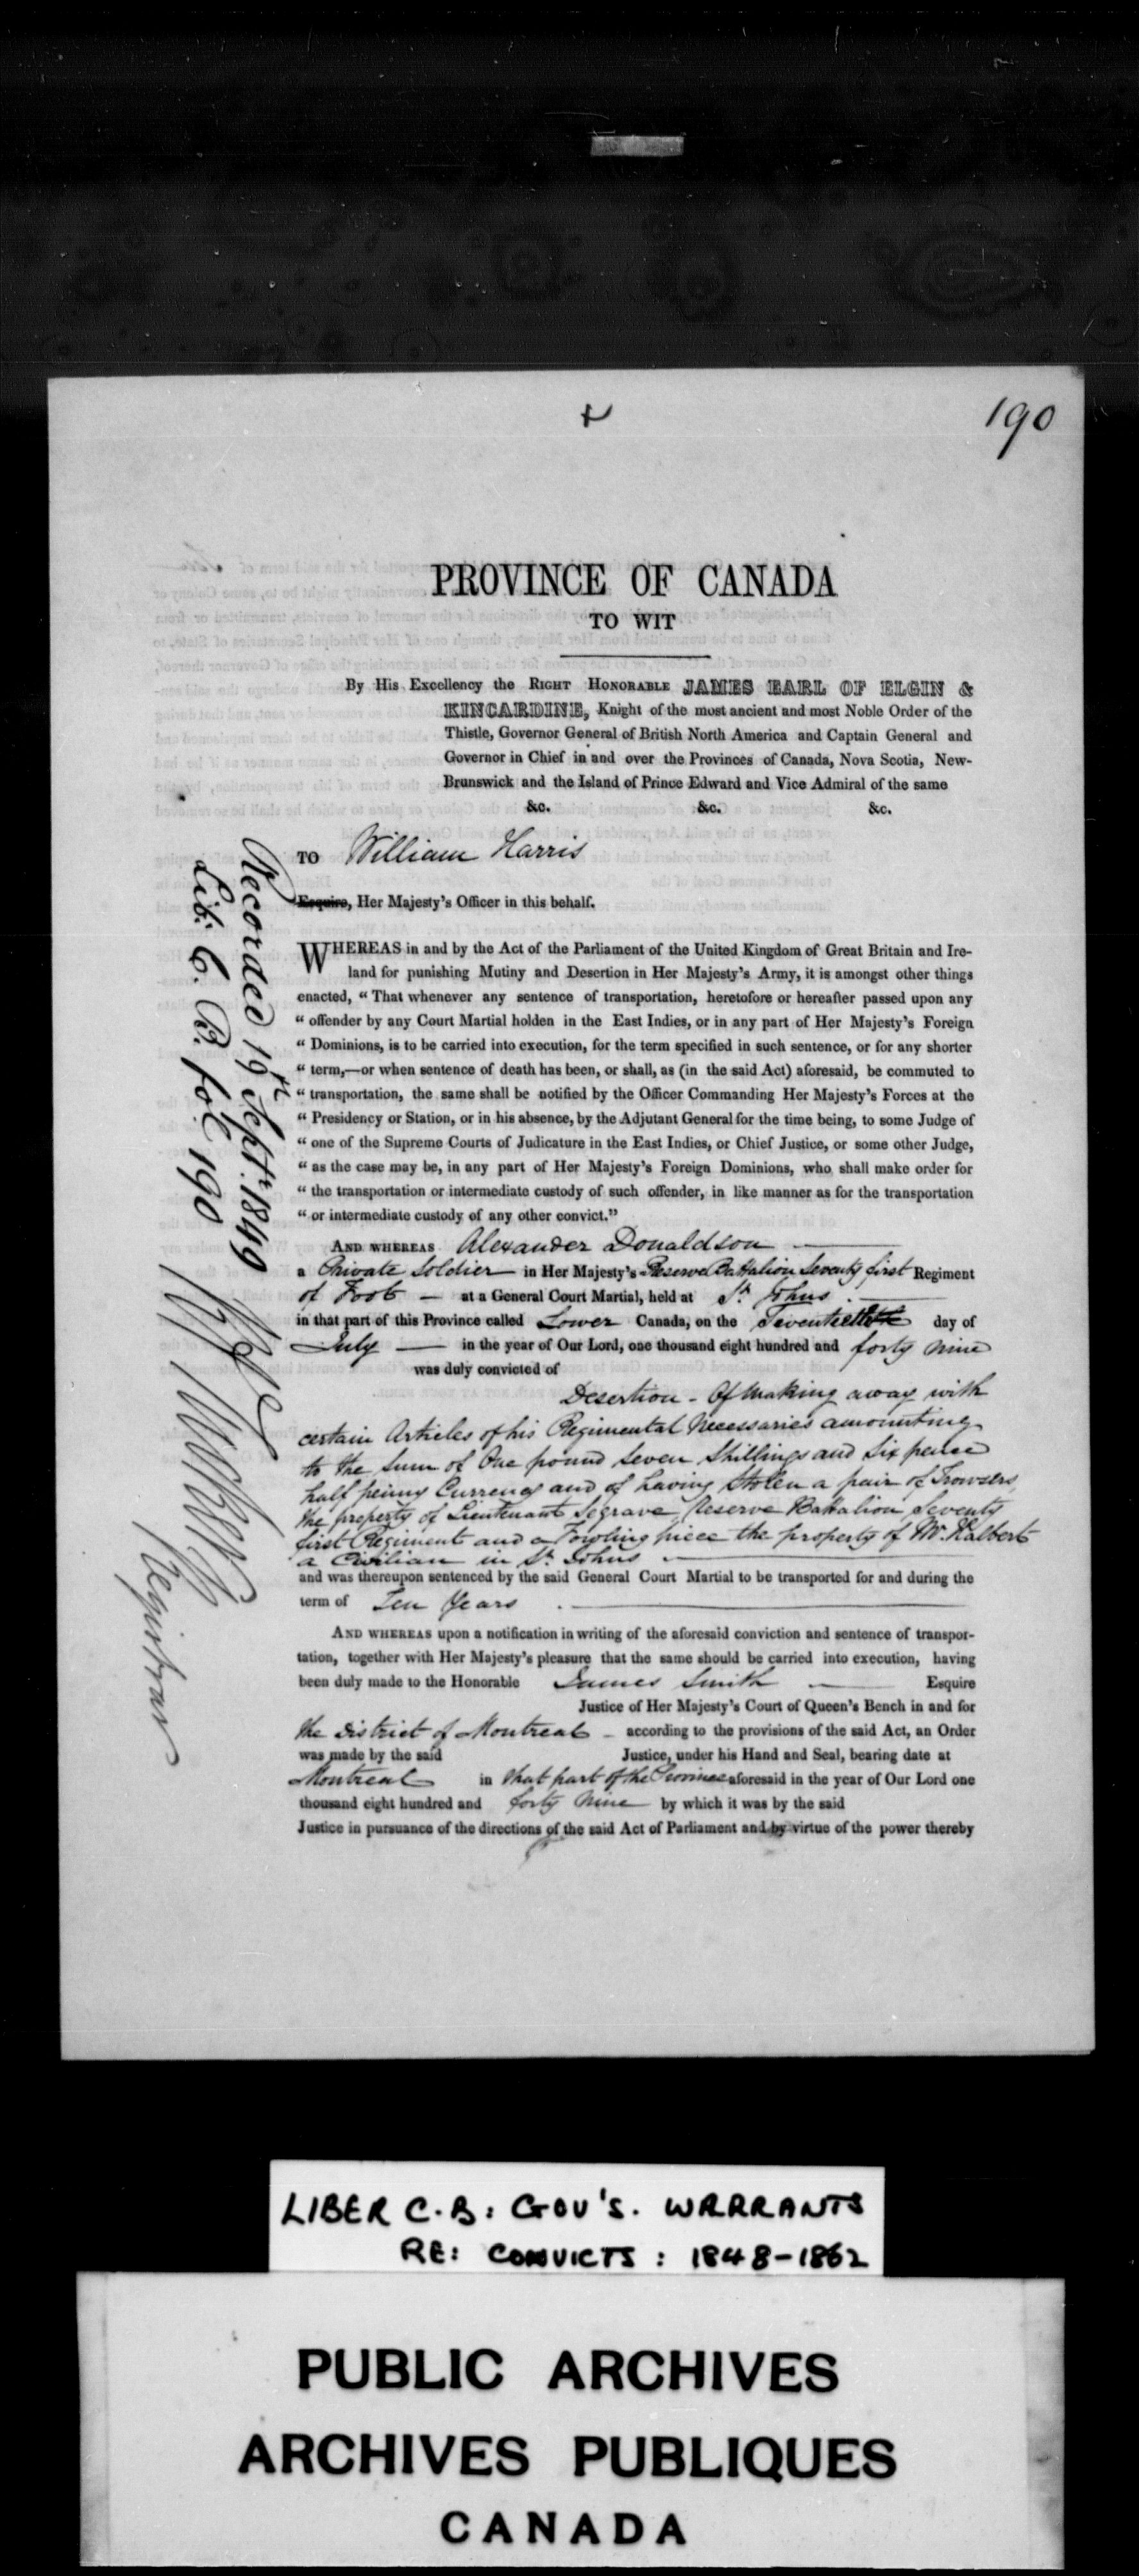 190
PROVINCE OF CANADA
TO WIT
By His Excellency the RIGHT HONORABLE JAMES EARL OF ELGIN &
KINCARDINE, Knight of the most ancient and most Noble Order of the
Thistle, Governor General of British North America and Captain General and
Governor in Chief in and over the Provinces of Canada, Nova Scotia, New-
Brunswick and the Island of Prince Edward and Vice Admiral of the same
&c. &c. &c.
TO William Harris
Esquire, Her Majesty's Officer in this behalf.
WHEREAS in and by the Act of the Parliament of the United Kingdom of Great Britain and Ire-
land for punishing Mutiny and Desertion in Her Majesty's Army, it is amongst other things
enacted, "That whenever any sentence of transportation, heretofore or hereafter passed upon any
"offender by any Court Martial holden in the East Indies, or in any part of Her Majesty's Foreign
"Dominions, is to be carried into execution, for the term specified in such sentence, or for any shorter
"term,—or when sentence of death has been, or shall, as (in the said Act) aforesaid, be commuted to
"transportation, the same shall be notified by the Officer Commanding Her Majesty's Forces at the
"Presidency or Station, or in his absence, by the Adjutant General for the time being, to some Judge of
"one of the Supreme Courts of Judicature in the East Indies, or Chief Justice, or some other Judge,
"as the case may be, in any part of Her Majesty's Foreign Dominions, who shall make order for
"the transportation or intermediate custody of such offender, in like manner as for the transportation
"or intermediate custody of any other convict."
AND WHEREAS Alexander Donaldson
a Private Soldier in Her Majesty's Reserve Battalion Seventy first Regiment
of Foot — at a General Court Martial, held at St. Johns
in that part of this Province called Lower Canada, on the day of
July — in the year of Our Lord, one thousand eight hundred and forty nine
was duly convicted of
Desertion - Of making away with
certain Articles of his Regimental Necessaries amounting
to the Sum of One pound Seven Shillings and Six pence
half penny Currency and of having Stolen a pair of Trowsers,
the property of Lieutenant Segrave Reserve Battalion Seventy
first Regiment and a Fowling piece the property of Mr. Halbert
a Civilian in St. Johns
and was thereupon sentenced by the said General Court Martial to be transported for and during the
term of Ten Years
AND WHEREAS upon a notification in writing of the aforesaid conviction and sentence of transpor-
tation, together with Her Majesty's pleasure that the same should be carried into execution, having
been duly made to the Honorable James Smith Esquire
Justice of Her Majesty's Court of Queen's Bench in and for
the District of Montreal - according to the provisions of the said Act, an Order
was made by the said Justice, under his Hand and Seal, bearing date at
Montreal in that part of the Province aforesaid in the year of Our Lord one
thousand eight hundred and forty nine by which it was by the said
Justice in pursuance of the directions of the said Act of Parliament and by virtue of the power thereby
Recorded 19th Septr. 1849
Lib: C. B. fol 190
Registrar
LIBER C.B: GOV'S. WARRANTS
RE: CONVICTS: 1848-1862
PUBLIC ARCHIVES
ARCHIVES PUBLIQUES
CANADA